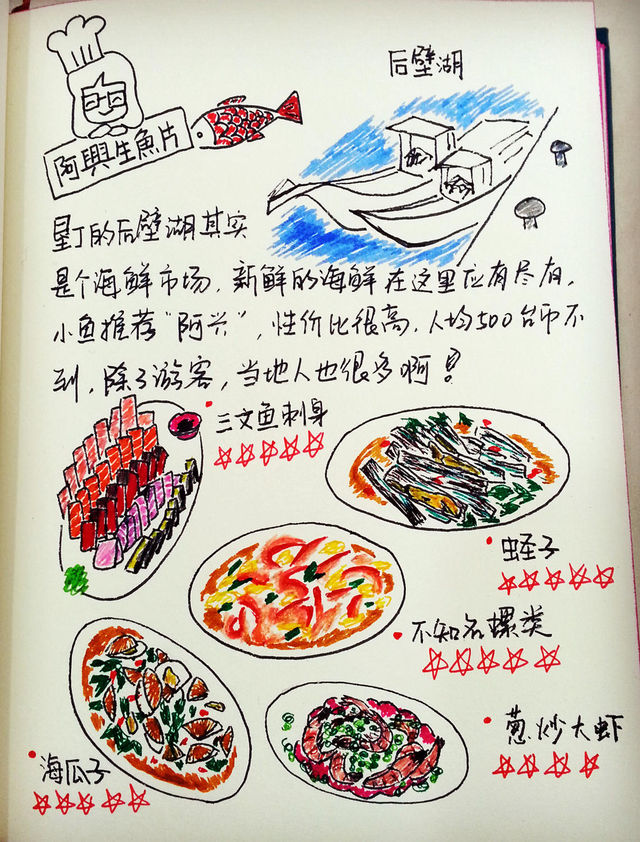 后壁湖
阿興生魚片
垦丁的后壁湖其实
是个海鲜市场，新鲜的海鲜在这里应有尽有，
小鱼推荐“阿兴”，性价比很高，人均500台币不
到，除了游客，当地人也很多啊！
三文鱼刺身
蛏子
不知名螺类
葱炒大虾
海瓜子